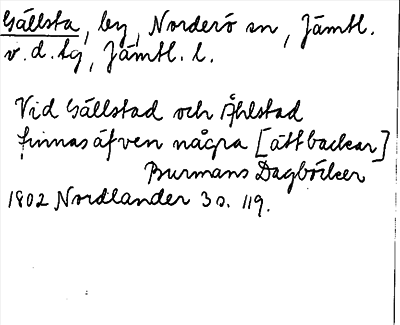 Gällsta, by, Norderö sn, Jämtl.
v. d. tg, Jämtl. l.
Vid Gällstad och Åhlstad
finnas äfven några [ättbackar]
Burmans Dagböcker
1802 Nordlander 3 s. 119.